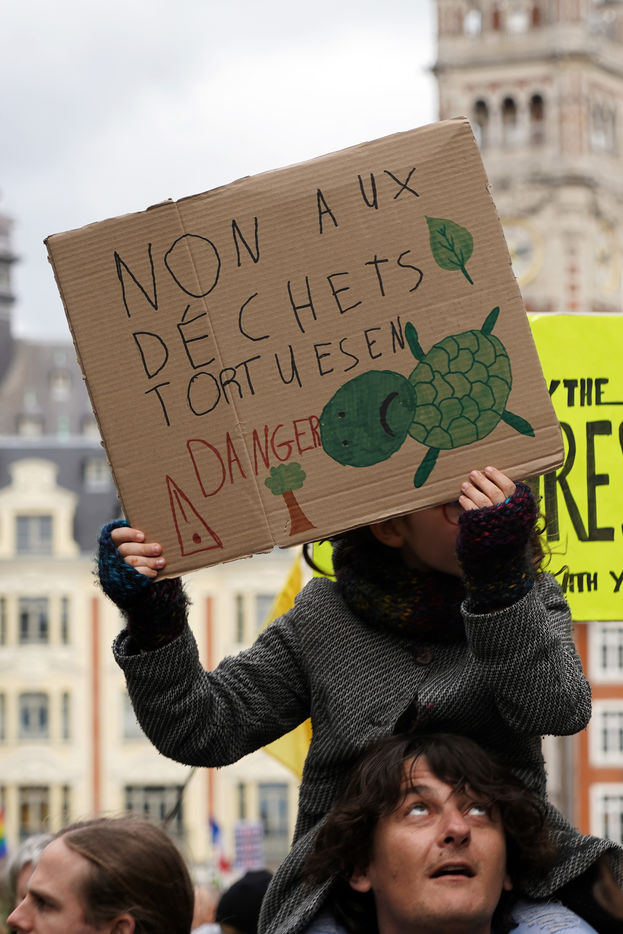 NON AUX
DÉCHETS
TORTUESEN
DANGER
THE
RES
WITH Y